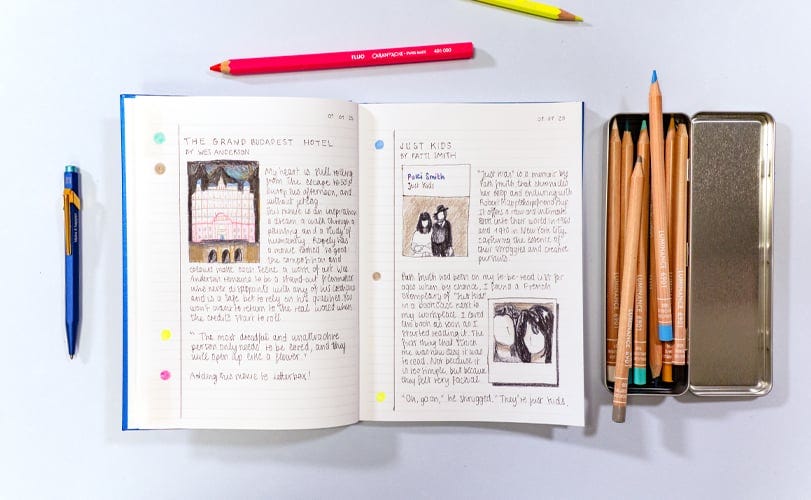 FLUO CARAN D'ACHE SWISS MADE 491.080
THE GRAND BUDAPEST HOTEL
BY WES ANDERSON
My heart is still rolling
from the escape to
Europe this afternoon, and
without jetlag.
This movie is an inspiration
a dream, a walk through a
painting and a study of
humanity. Rarely has
a movie name so good
the composition and
colours make each scene a work of art. Wes
Anderson remains to be a stand-out filmmaker
who never disappoints with any of his creations
and is a safe bet to rely on his goodies. You
won't want to return to the real world when
the credits start to roll.
" The most dreadful and unattractive
person only needs to be loved, and they
will open up like a flower."
Adding this movie to letterbox!
JUST KIDS
BY PATTI SMITH
Patti Smith
Just Kids
"Just Kids" is a memoir by
Patti Smith that chronicles
her deep and enduring with
Robert Mapplethorpe
It offers a raw and intimate
look into their world in 1960
and 1970 in New York City,
capturing the essence of
their struggles and creative
pursuits.
Patti Smith had been on my to-be-read list for
ages when by chance, I found a French
exemplary of "Just Kids"
in a bookcase next to
my workplace. I loved
this book as soon as I
started reading it. The
first thing that struck
me was how easy it was
to read. Not because it
is too simple, but because
they felt very factual.
"Oh, go on," he shrugged. "They're just kids.
LUMINANCE 6901
LUMINANCE 6901
LUMINANCE 6901